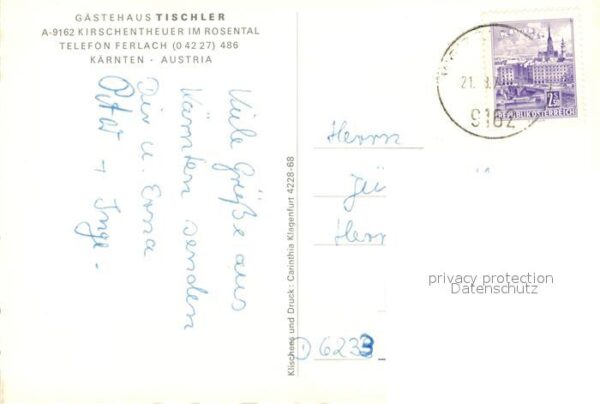 GÄSTEHAUS TISCHLER
A-9162 KIRSCHENTHEUER IM ROSENTAL
TELEFON FERLACH (0 42 27) 486
KÄRNTEN · AUSTRIA
Viele Grüße aus
Kärnten senden
Dir u. Erna
+ Inge.
Klischees und Druck: Carinthia Klagenfurt 4228-68
21. 8.
9162
REPUBLIK ÖSTERREICH
Herrn
Jü
Herr
6233
privacy protection
Datenschutz